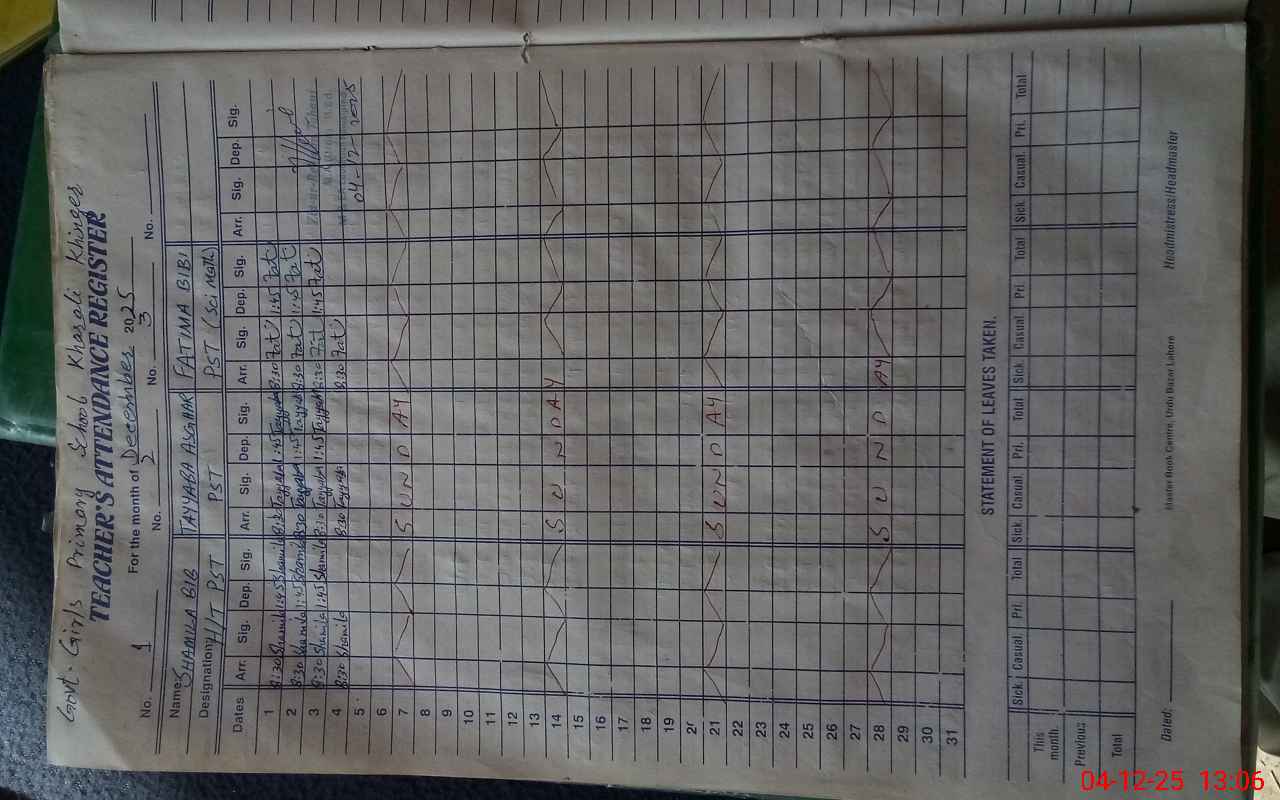 Govt. Girls Primary School Kharoli Khinger
TEACHER'S ATTENDANCE REGISTER
For the month of December 2025
No. 1 No. 2 No. 3 No.
Name SHAMILA BIB TAYYABA ASGHAR FATIMA BIBI
Designation H/T PST PST PST (Sci Math)
Dates Arr. Sig. Dep. Sig. Arr. Sig. Dep. Sig. Arr. Sig. Dep. Sig. Arr. Sig. Dep. Sig.
1 8:30 Shamila 1:45 Shamila 8:30 Tayyaba 1:45 Tayyaba 8:30 Fati 1:45 Fati
2 8:30 Shamila 1:45 Shamila 8:30 Tayyaba 1:45 Tayyaba 8:30 Fati 1:45 Fati
3 8:30 Shamila 1:45 Shamila 8:30 Tayyaba 1:45 Tayyaba 8:30 Fati 1:45 Fati
4 8:30 Shamila 8:30 Tayyaba 8:30 Fati
5 04-12-2025
6
7 SUNDAY
8
9
10
11
12
13
14 SUNDAY
15
16
17
18
19
20
21 SUNDAY
22
23
24
25
26
27
28 SUNDAY
29
30
31
STATEMENT OF LEAVES TAKEN.
Sick Casual Pri. Total Sick Casual Pri. Total Sick Casual Pri Total Sick Casual Pri. Total
This month.
Previous
Total
Dated: Master Book Centre, Urdu Bazar Lahore Headmistress/Headmaster
04-12-25 13:06